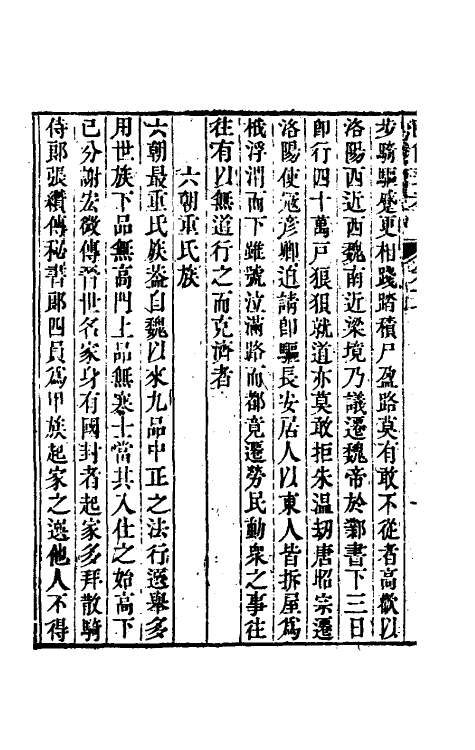 步騎驅蹙更相踐蹈積尸盈路莫有敢不從者高歡以
洛陽西近西魏南近梁境乃議遷魏帝於鄴書下三日
卽行四十萬戸狼狽就道亦莫敢拒朱温刼唐昭宗遷
洛陽使寇彦卿迫請卽驅長安居人以東人皆拆屋爲
栰浮渭而下雖號泣滿路而都竟遷勞民動衆之事往
往有以無道行之而克濟者
六朝重氏族
六朝最重氏族葢自魏以來九品中正之法行選舉多
用世族下品無高門上品無寒士當其入仕之始高下
已分謝宏微傳晉世名家身有國封者起家多拜散騎
侍郎張纘傳秘書郎四員爲甲族起家之選他人不得